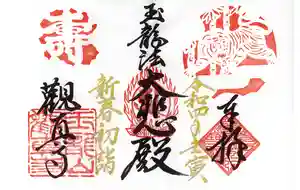 奉拝
令和四年壬寅
玉龍法
大悲殿
新春初詣
觀真寺